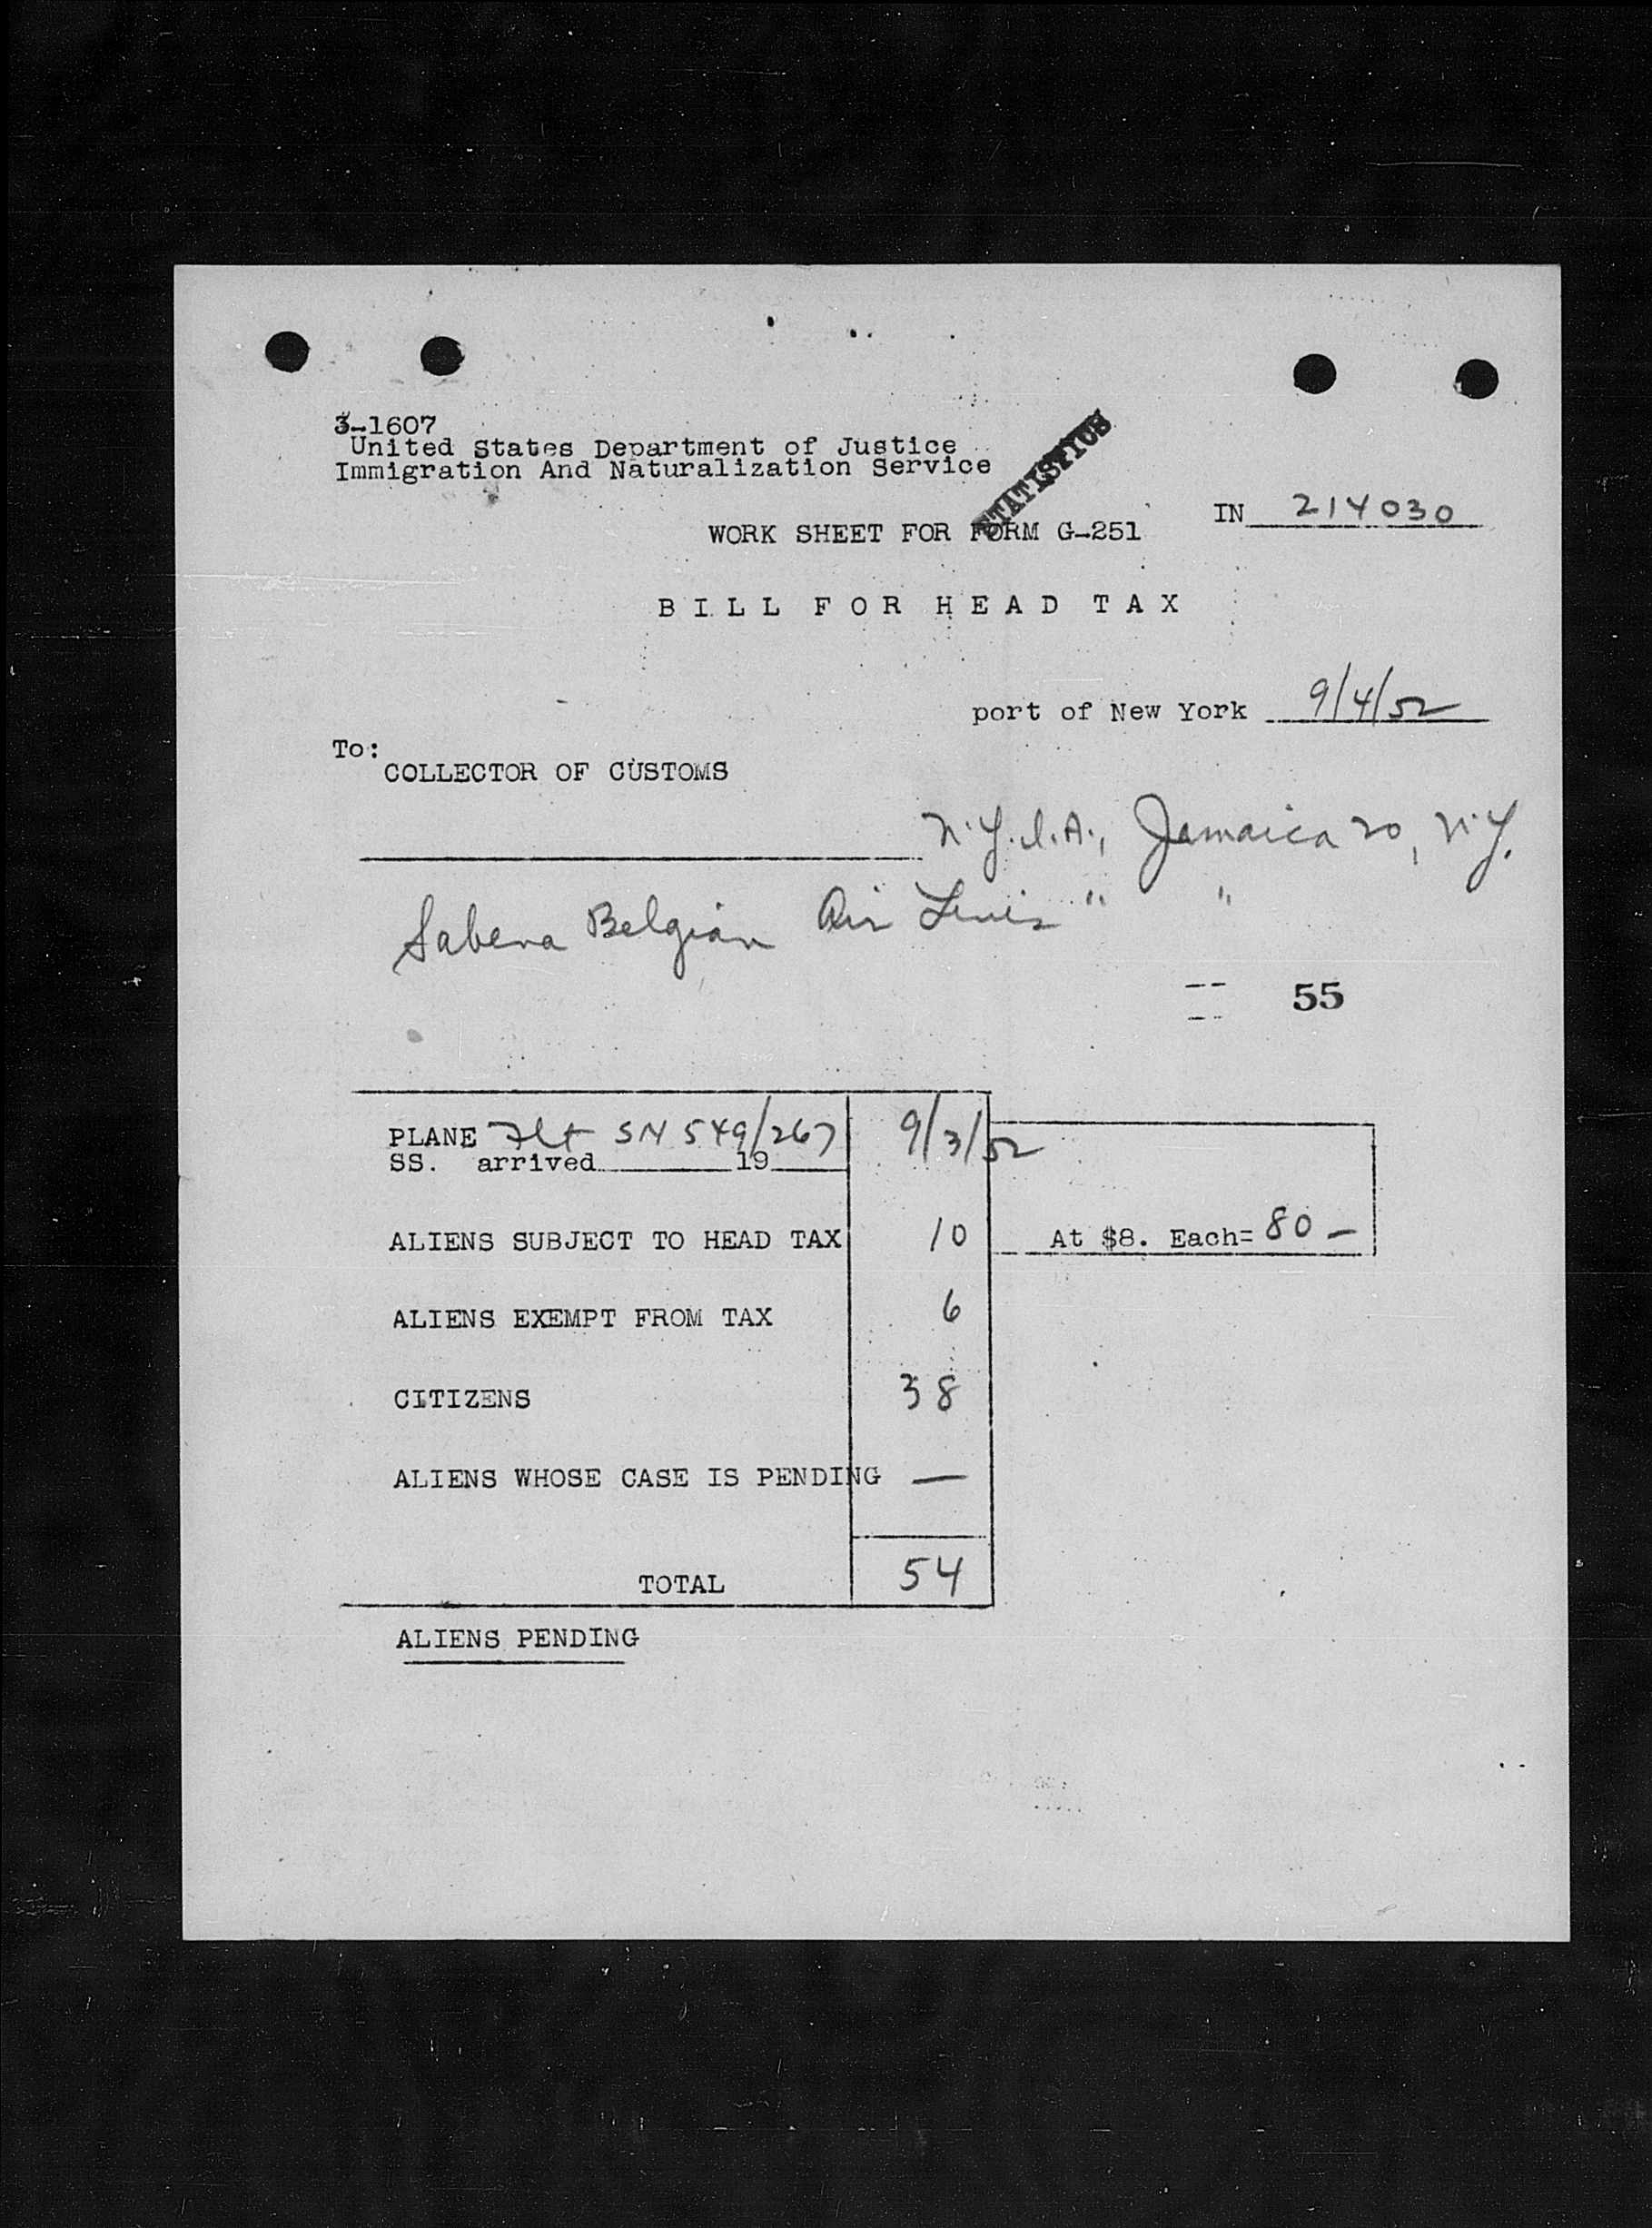 3-1607
United States Department of Justice
Immigration And Naturalization Service
STATISTICS
IN 214030
WORK SHEET FOR FORM G-251
BILL FOR HEAD TAX
port of New York 9/4/52
To:
COLLECTOR OF CUSTOMS
N.Y.I.A., Jamaica 20, N.Y.
Sabena Belgian Air Lines " "
55
PLANE Flt SN 549/267 9/3/52
SS. arrived 19
ALIENS SUBJECT TO HEAD TAX 10 At $8. Each= 80 -
ALIENS EXEMPT FROM TAX 6
CITIZENS 38
ALIENS WHOSE CASE IS PENDING —
TOTAL 54
ALIENS PENDING